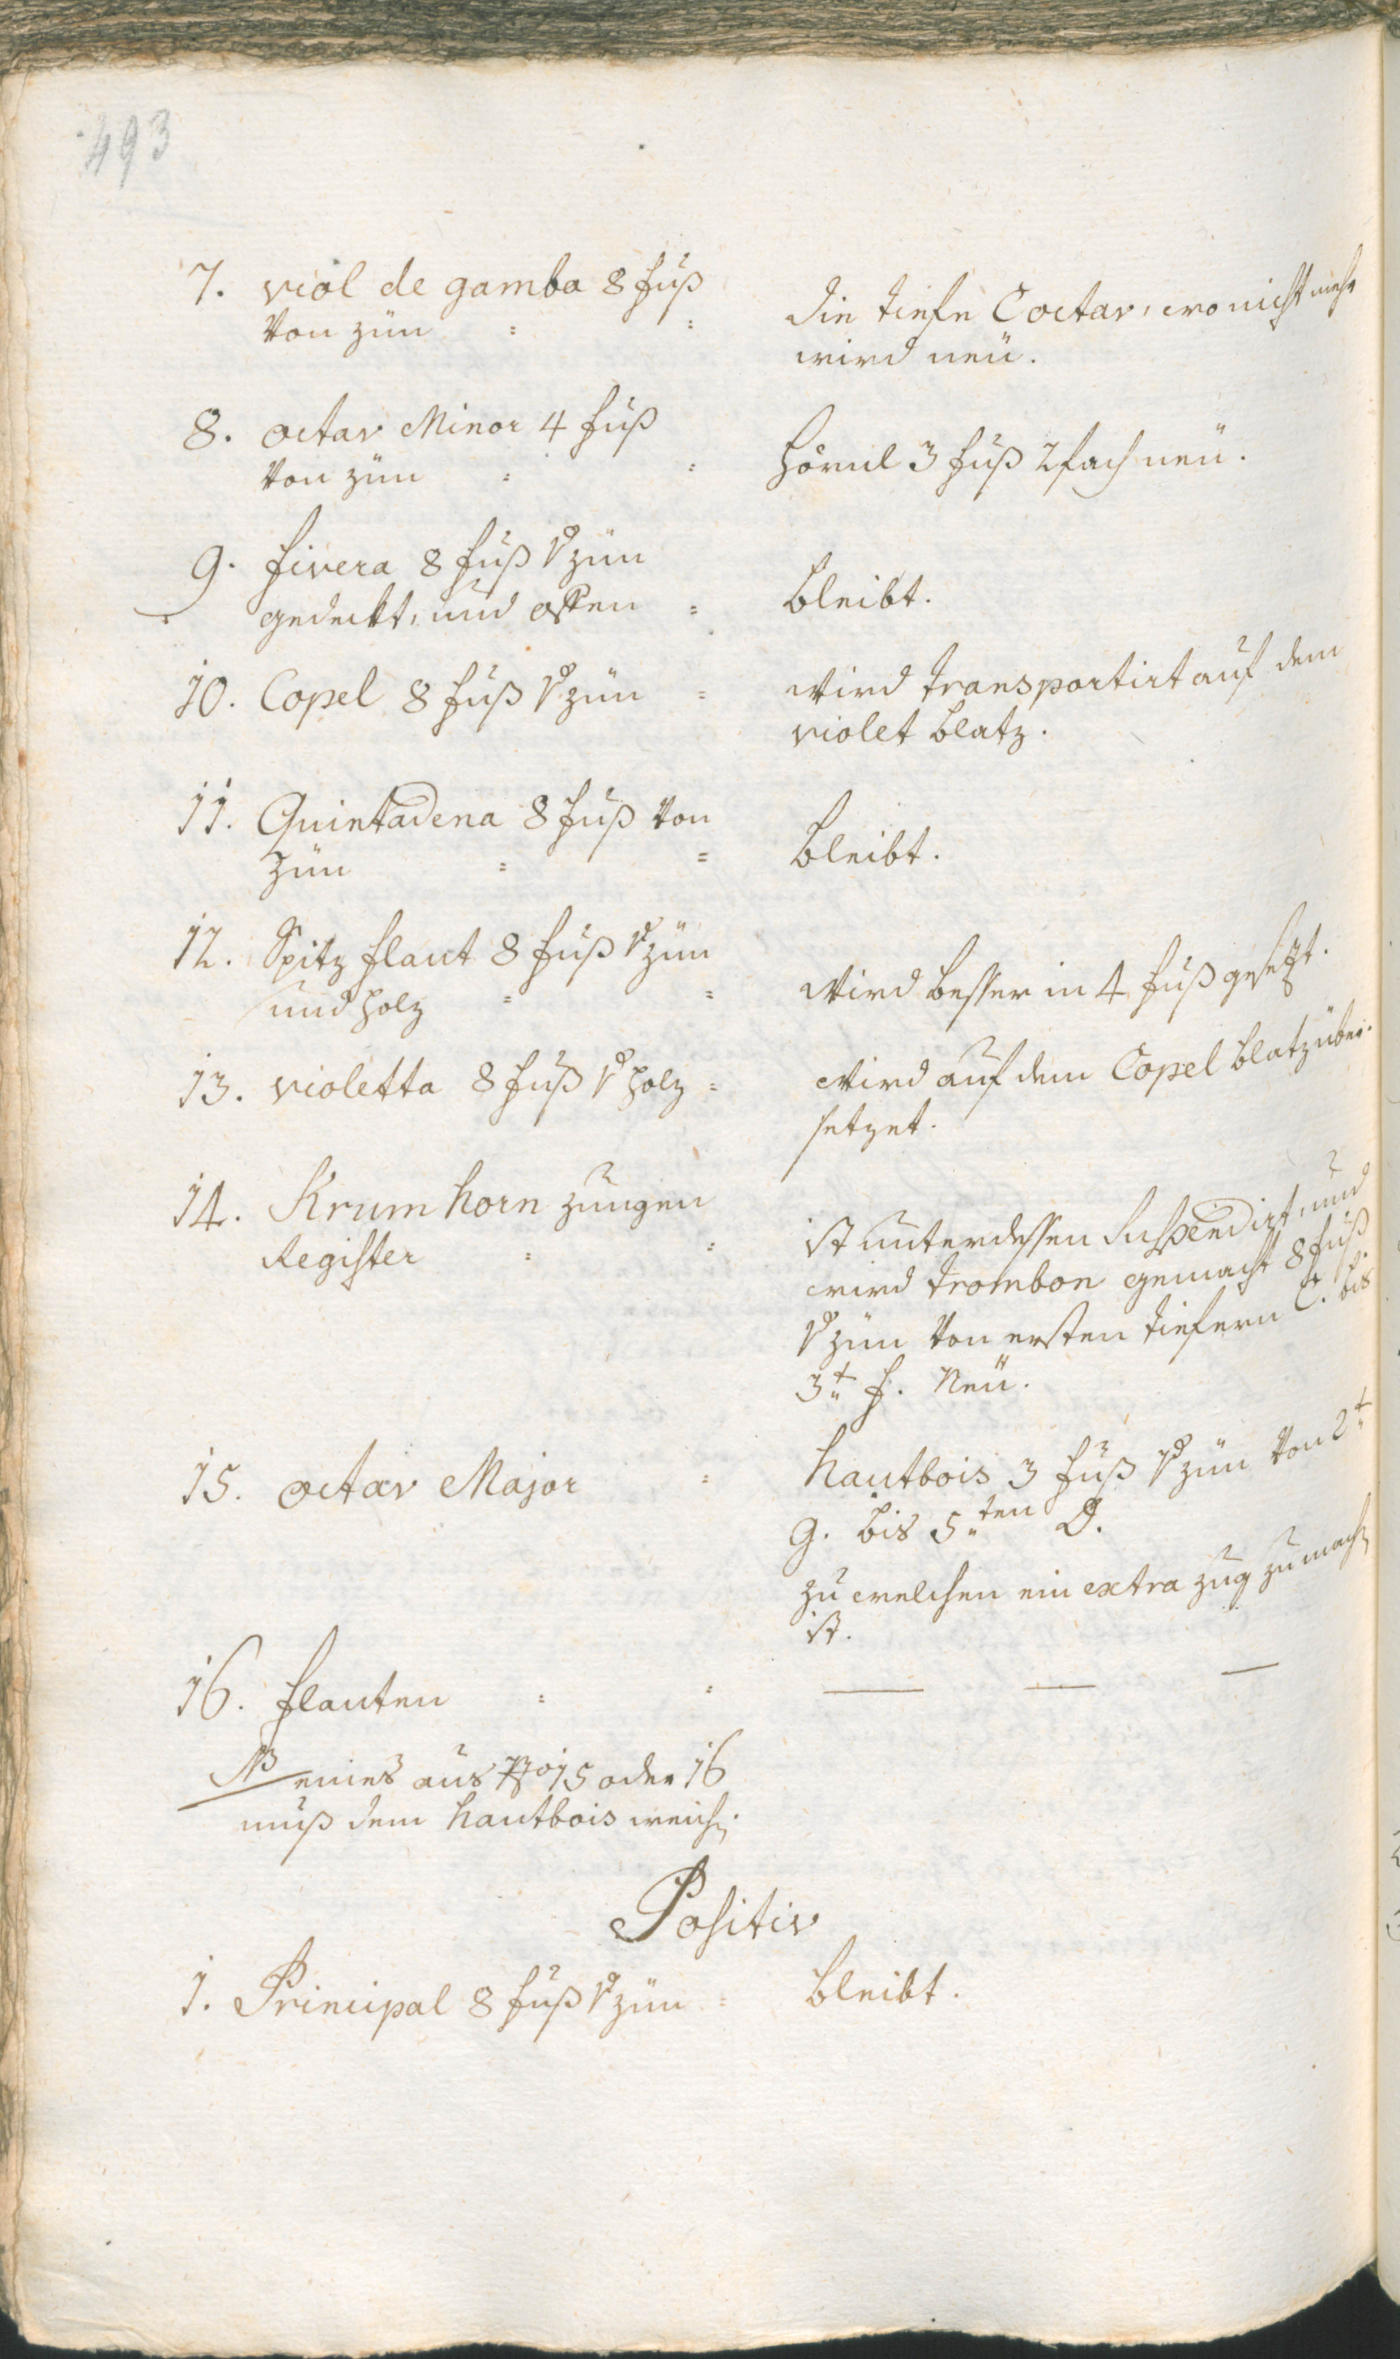 493
7. viol de gamba 8 fuß
von zün = =
die tiefe C octav, wo nicht mehr
wird neü.
8. octav Minor 4 fuß
von zün = =
Hörnl 3 fuß 2fach neü.
9. fivera 8 fuß v zün
gedeckt, und offen =
bleibt.
10. Copel 8 fuß v zün =
wird transportirt auf dem
violet blatz.
11. Quintadena 8 fuß von
zün = =
bleibt.
12. Spitz flaut 8 fuß v zün
und holz = =
wird besser in 4 fuß gesezt.
13. violetta 8 fuß v holz =
wird auf dem Copel blatz über-
setzet.
14. Krumhorn zungen
Register = =
ist unterdessen suspendirt, und
wird trombon gemacht 8 fuß
v zün von ersten tiefern C. bis
3t f. Neü.
15. octav Major =
hautbois 3 fuß v zün von 2t
g. bis 5ten D.
zu welchen ein extra zug zu mach
ist.
16. flauten = =
NB eines aus No 15 oder 16
muß dem hautbois weich
Positiv
1. Principal 8 fuß v zün =
bleibt.